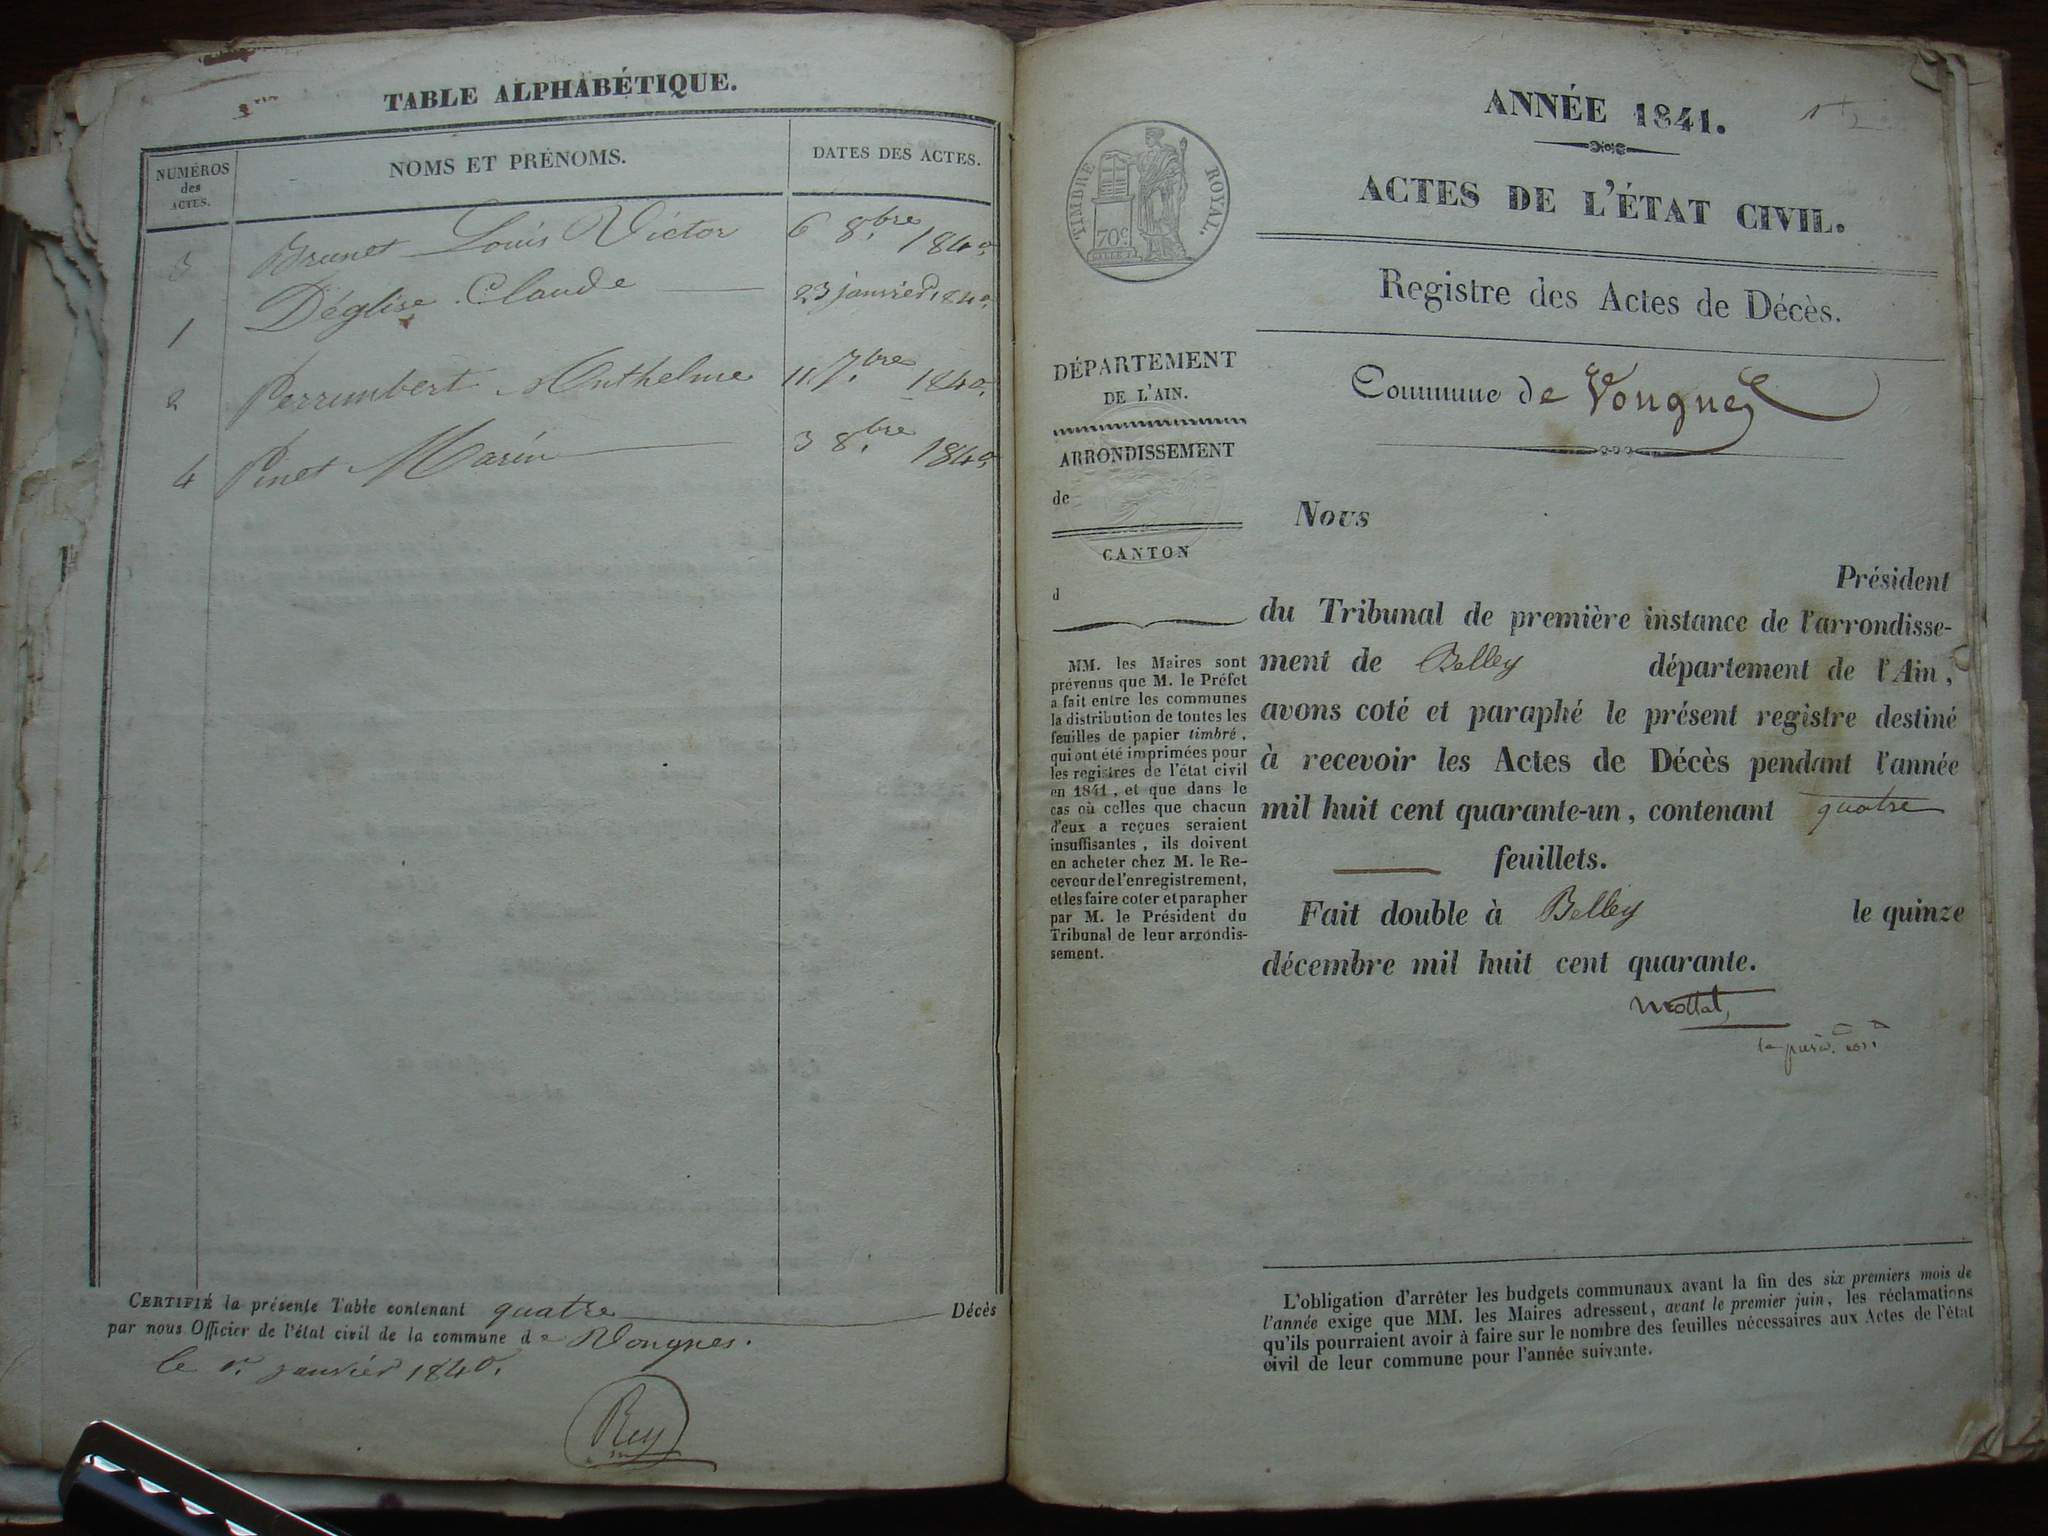 TABLE ALPHABÉTIQUE.
NUMÉROS
des
ACTES.
NOMS ET PRÉNOMS.
DATES DES ACTES.
3 Brunet Louis Victor 6 8.bre 1840.
1 Déglise Claude 23 janvier 1840.
2 Perrimbert Anthelme 11. 7.bre 1840.
4 Pinet Marin 3 8.bre 1840
CERTIFIÉ la présente Table contenant quatre Décès
par nous Officier de l'état civil de la commune de Vongnes.
le 1.er janvier 1840.
Rey
ANNÉE 1841.
ACTES DE L'ÉTAT CIVIL.
TIMBRE ROYAL.
70c
Registre des Actes de Décès.
Commune de Vongnes
DÉPARTEMENT
DE L'AIN.
ARRONDISSEMENT
de
CANTON
d
MM. les Maires sont
prévenus que M. le Préfet
a fait entre les communes
la distribution de toutes les
feuilles de papier timbré,
qui ont été imprimées pour
les registres de l'état civil
en 1841, et que dans le
cas où celles que chacun
d'eux a reçues seraient
insuffisantes, ils doivent
en acheter chez M. le Re-
ceveur de l'enregistrement,
et les faire coter et parapher
par M. le Président du
Tribunal de leur arrondis-
sement.
Nous
Président
du Tribunal de première instance de l'arrondisse-
ment de Belley département de l'Ain,
avons coté et paraphé le présent registre destiné
à recevoir les Actes de Décès pendant l'année
mil huit cent quarante-un, contenant quatre
feuillets.
Fait double à Belley le quinze
décembre mil huit cent quarante.
Mottat,
L'obligation d'arrêter les budgets communaux avant la fin des six premiers mois de
l'année exige que MM. les Maires adressent, avant le premier juin, les réclamations
qu'ils pourraient avoir à faire sur le nombre des feuilles nécessaires aux Actes de l'état
civil de leur commune pour l'année suivante.